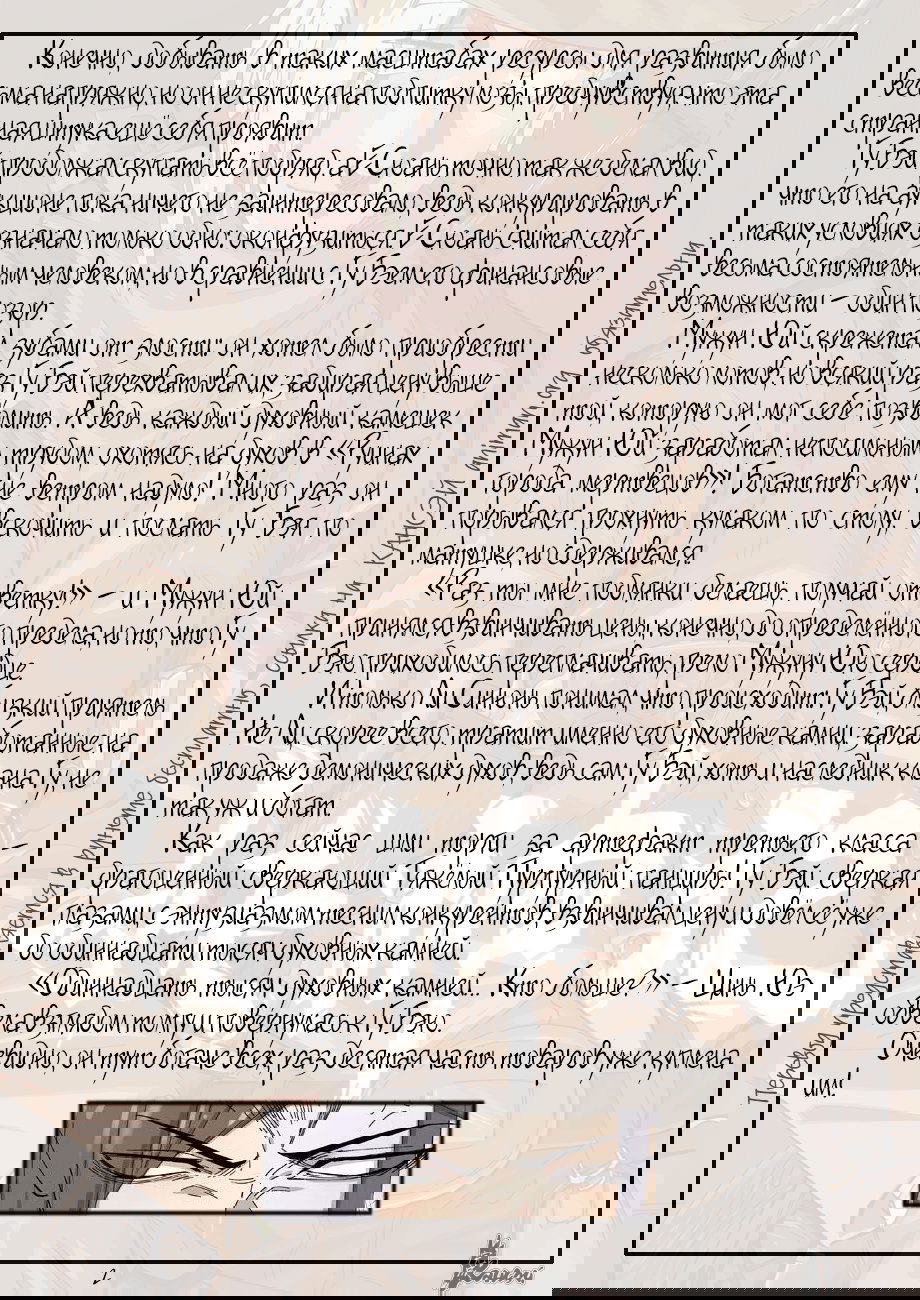 Конечно, добывать в таких масштабах ресурсы для развития было
весьма напряжно, но он не скупился на подпитку лозы, предчувствуя, что эта
странная штука ещё себя проявит.
Гу Бэй продолжал скупать всё подряд, а Сюань точно так же делал вид,
что его на аукционе пока ничего не заинтересовало, ведь конкурировать в
таких условиях означало только одно: оконфузиться. Сюань считал себя
весьма состоятельным человеком, но в сравнении с Гу Бэем его финансовые
возможности – один пшик.
Мужун Юй скрежетал зубами от злости: он хотел было приобрести
несколько лотов, но всякий раз Гу Бэй перехватывал их, задирая цену выше
той, которую он мог себе позволить. А ведь каждый духовный камешек
Мужун Юй заработал непосильным трудом, охотясь на духов в «Руинах
города мертвецов»! Богатство ему не ветром надуло! Много раз он
порывался грохнуть кулаком по столу, вскочить и послать Гу Бэя по
матушке, но сдерживался.
«Раз ты мне подлянки делаешь, получай ответку!» – и Мужун Юй
принялся взвинчивать цены, конечно, до определённого предела, но то, что Гу
Бэю приходилось переплачивать, грело Мужун Юю сердце.
И только Ли Синюнь понимал, что происходит: Гу Бэй, близкий приятель
Не Ли, скорее всего, тратит именно его духовные камни, заработанные на
продаже демонических духов, ведь сам Гу Бэй, хоть и наследник клана Гу, не
так уж и богат.
Как раз сейчас шли торги за артефакт третьего класса –
драгоценный сверкающий Тяжёлый Пурпурный панцирь. Гу Бэй, сверкая
глазами, с энтузиазмом теснил конкурентов, взвинчивал цену и довёл её уже
до одиннадцати тысяч духовных камней.
«Одиннадцать тысяч духовных камней... Кто больше?» – Цинь Юэ
обвела взглядом толпу и повернулась к Гу Бэю.
Очевидно, он тут богаче всех, раз десятая часть товаров уже куплена
им!